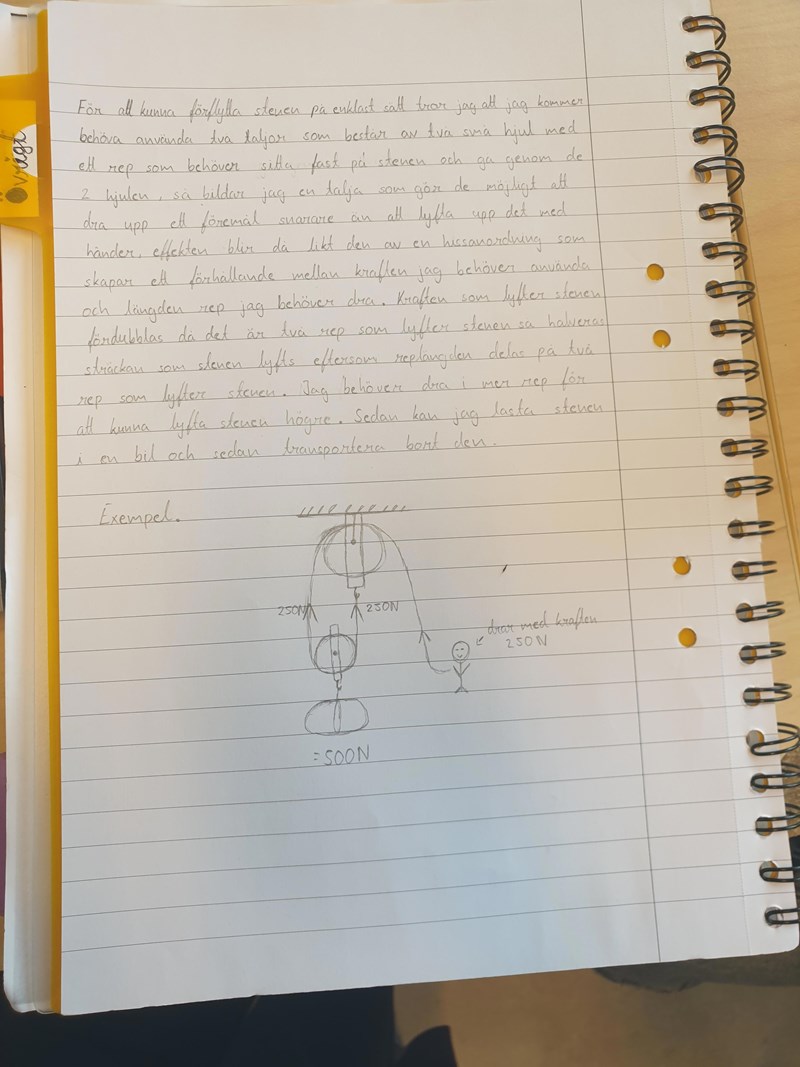 Övrigt
För att kunna förflytta stenen på enklast sätt tror jag att jag kommer
behöva använda två taljor som består av två små hjul med
ett rep som behöver sitta fast på stenen och gå genom de
2 hjulen, så bildar jag en talja som gör de möjligt att
dra upp ett föremål snarare än att lyfta upp det med
händer, effekten blir då likt den av en hissanordning som
skapar ett förhållande mellan kraften jag behöver använda
och längden rep jag behöver dra. Kraften som lyfter stenen
fördubblas då det är två rep som lyfter stenen så halveras
sträckan som stenen lyfts eftersom replängden delas på två
rep som lyfter stenen. Jag behöver dra i mer rep för
att kunna lyfta stenen högre. Sedan kan jag lasta stenen
i en bil och sedan transportera bort den.
Exempel.
250N 250N
drar med kraften
250N
=500N